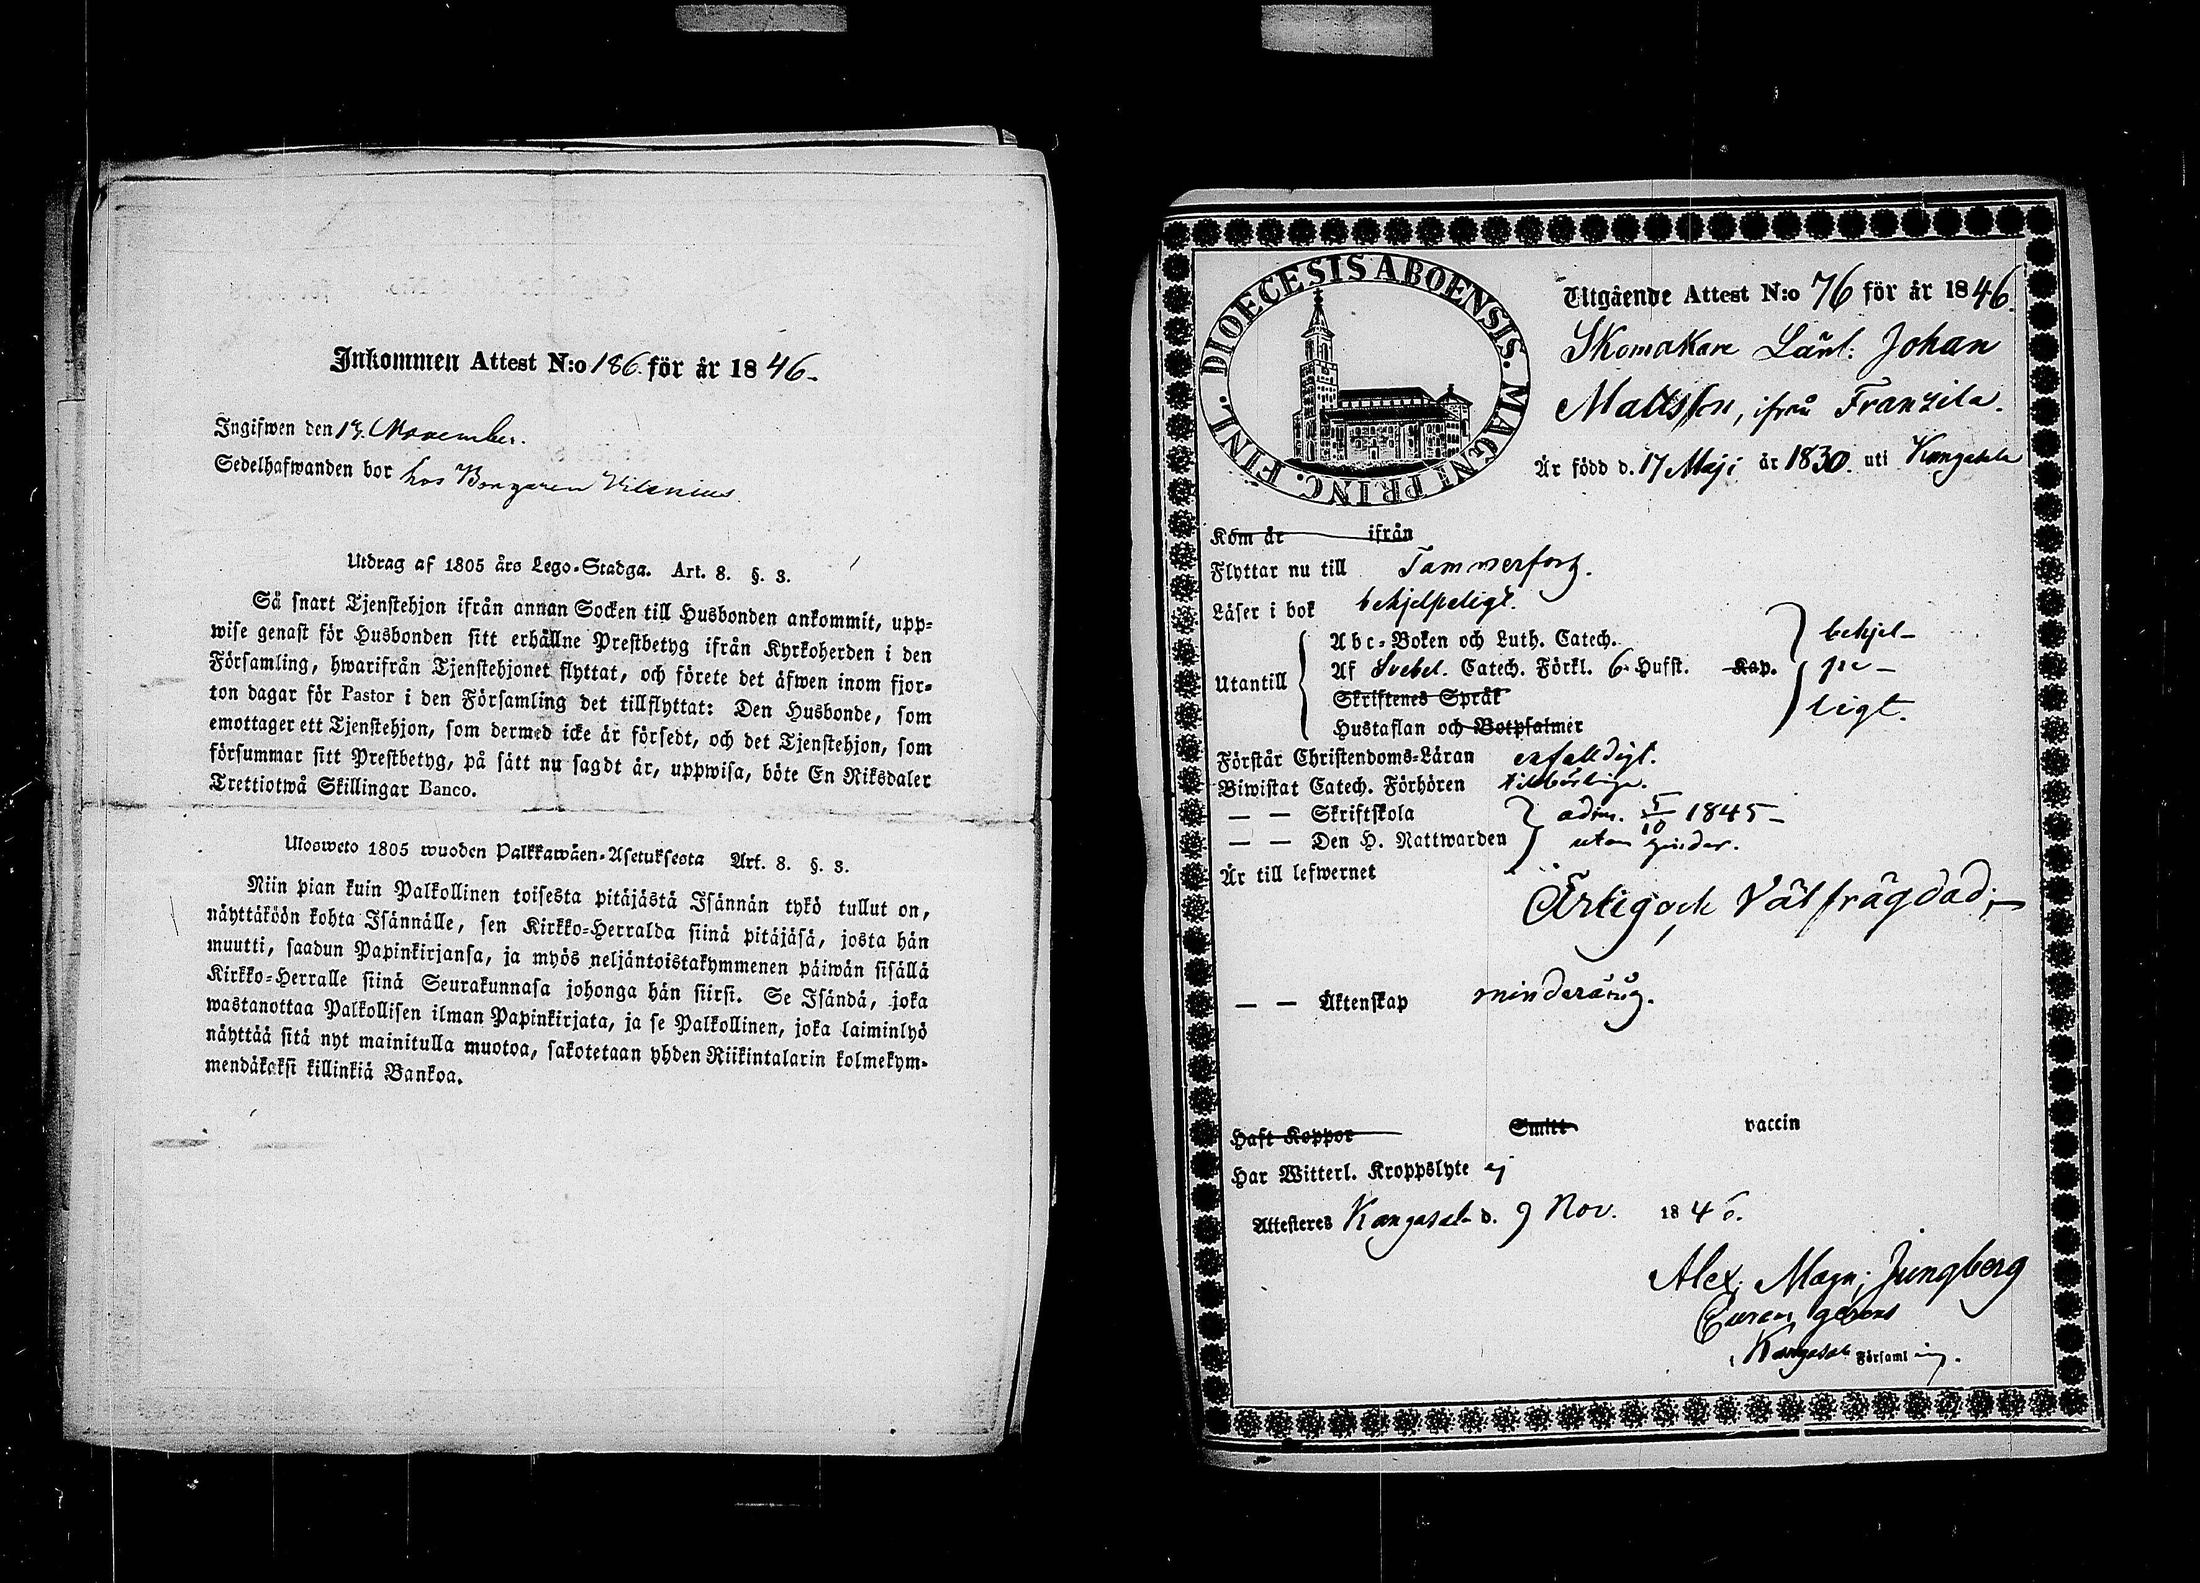 Inkommen Attest N:o 186. för år 1846.
Ingifwen den 13. November.
Sedelhafwanden bor hos Borgaren Vilenius.
Utdrag af 1805 års Lego-Stadga. Art. 8. §. 3.
Så snart Tjenstehjon ifrån annan Socken till Husbonden ankommit, upp-
wise genast för Husbonden sitt erhållne Prestbetyg ifrån Kyrkoherden i den
Församling, hwarifrån Tjenstehjonet flyttat, och förete det äfwen inom fjor-
ton dagar för Pastor i den Församling det tillflyttat: Den Husbonde, som
emottager ett Tjenstehjon, som dermed icke är försedt, och det Tjenstehjon, som
försummar sitt Prestbetyg, på sätt nu sagdt är, uppwisa, böte En Riksdaler
Trettiotwå Skillingar Banco.
Ulosweto 1805 wuoden Palkkawäen-Asetuksesta Art. 8. §. 3.
Niin pian kuin Palkollinen toisesta pitäjästä Isännän tykö tullut on,
näyttäköön kohta Isännälle, sen Kirkko-Herralda siinä pitäjäsä, josta hän
muutti, saadun Papinkirjansa, ja myös neljäntoistakymmenen päiwän sisällä
Kirkko-Herralle siinä Seurakunnasa johonga hän siirsi. Se Isändä, joka
wastanottaa Palkollisen ilman Papinkirjata, ja se Palkollinen, joka laiminlyö
näyttää sitä nyt mainitulla muotoa, sakotetaan yhden Riikintalarin kolmekym-
mendäkaksi killinkiä Bankoa.
DIOECESIS ABOENSIS. MAGNI PRINC. FINL.
Utgående Attest N:o 76 för år 1846.
Skomakare Lärl. Johan
Mattsson, ifrån Franzila.
Är född d. 17 Maji år 1830. uti Kangasala
Kom år ifrån
Flyttar nu till Tammerfors.
Läser i bok behjelpeligt.
Utantill
Abc-Boken och Luth. Catech.
Af Svebel. Catech. Förkl. 6 Hufst. Kap.
Skriftenes Språk
Hustaflan och Botpsalmer
behjel-
pe-
ligt.
Förstår Christendoms-Läran enfalldigt.
Biwistat Catech. Förhören tillbörligen.
— — Skriftskola
— — Den H. Nattwarden
adm. 5/10 1845-
utan hinder.
Är till lefwernet
Ärlig och Välfrägdad;
— — Äktenskap minderårig.
Haft Koppor Smitt vaccin
Har Witterl. Kroppslyte ej
Attesteres Kangasala d. 9 Nov. 1846.
Alex. Magn. Jungberg
gerens
i Kangasala Församling.